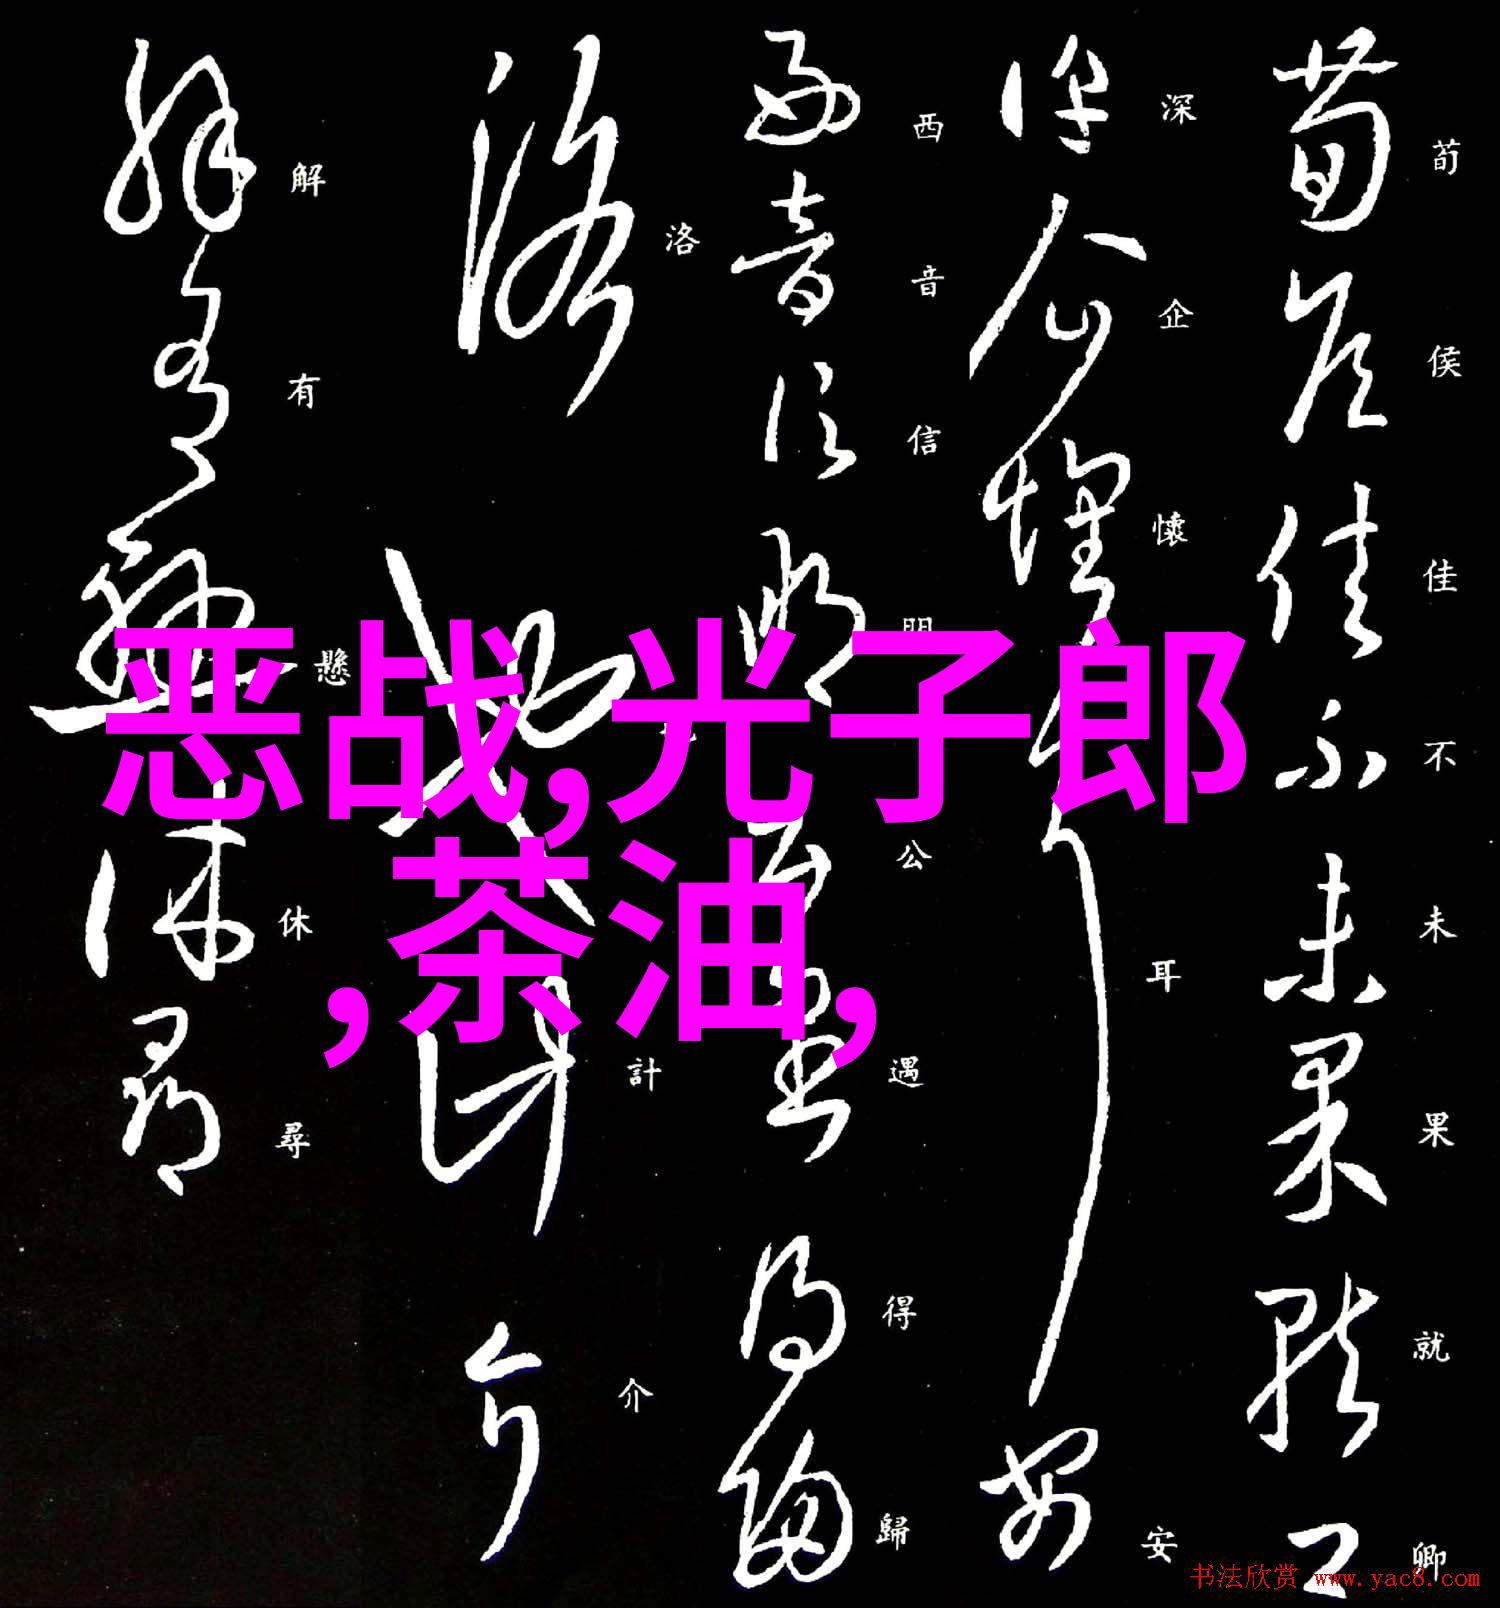 荀侯佳不未果就卿
深企懷耳安
西音信明公遇得歸
洛計介
解有懸休尋
恶战,光子郎
,茶油,
书法欣赏 www.yac8.com